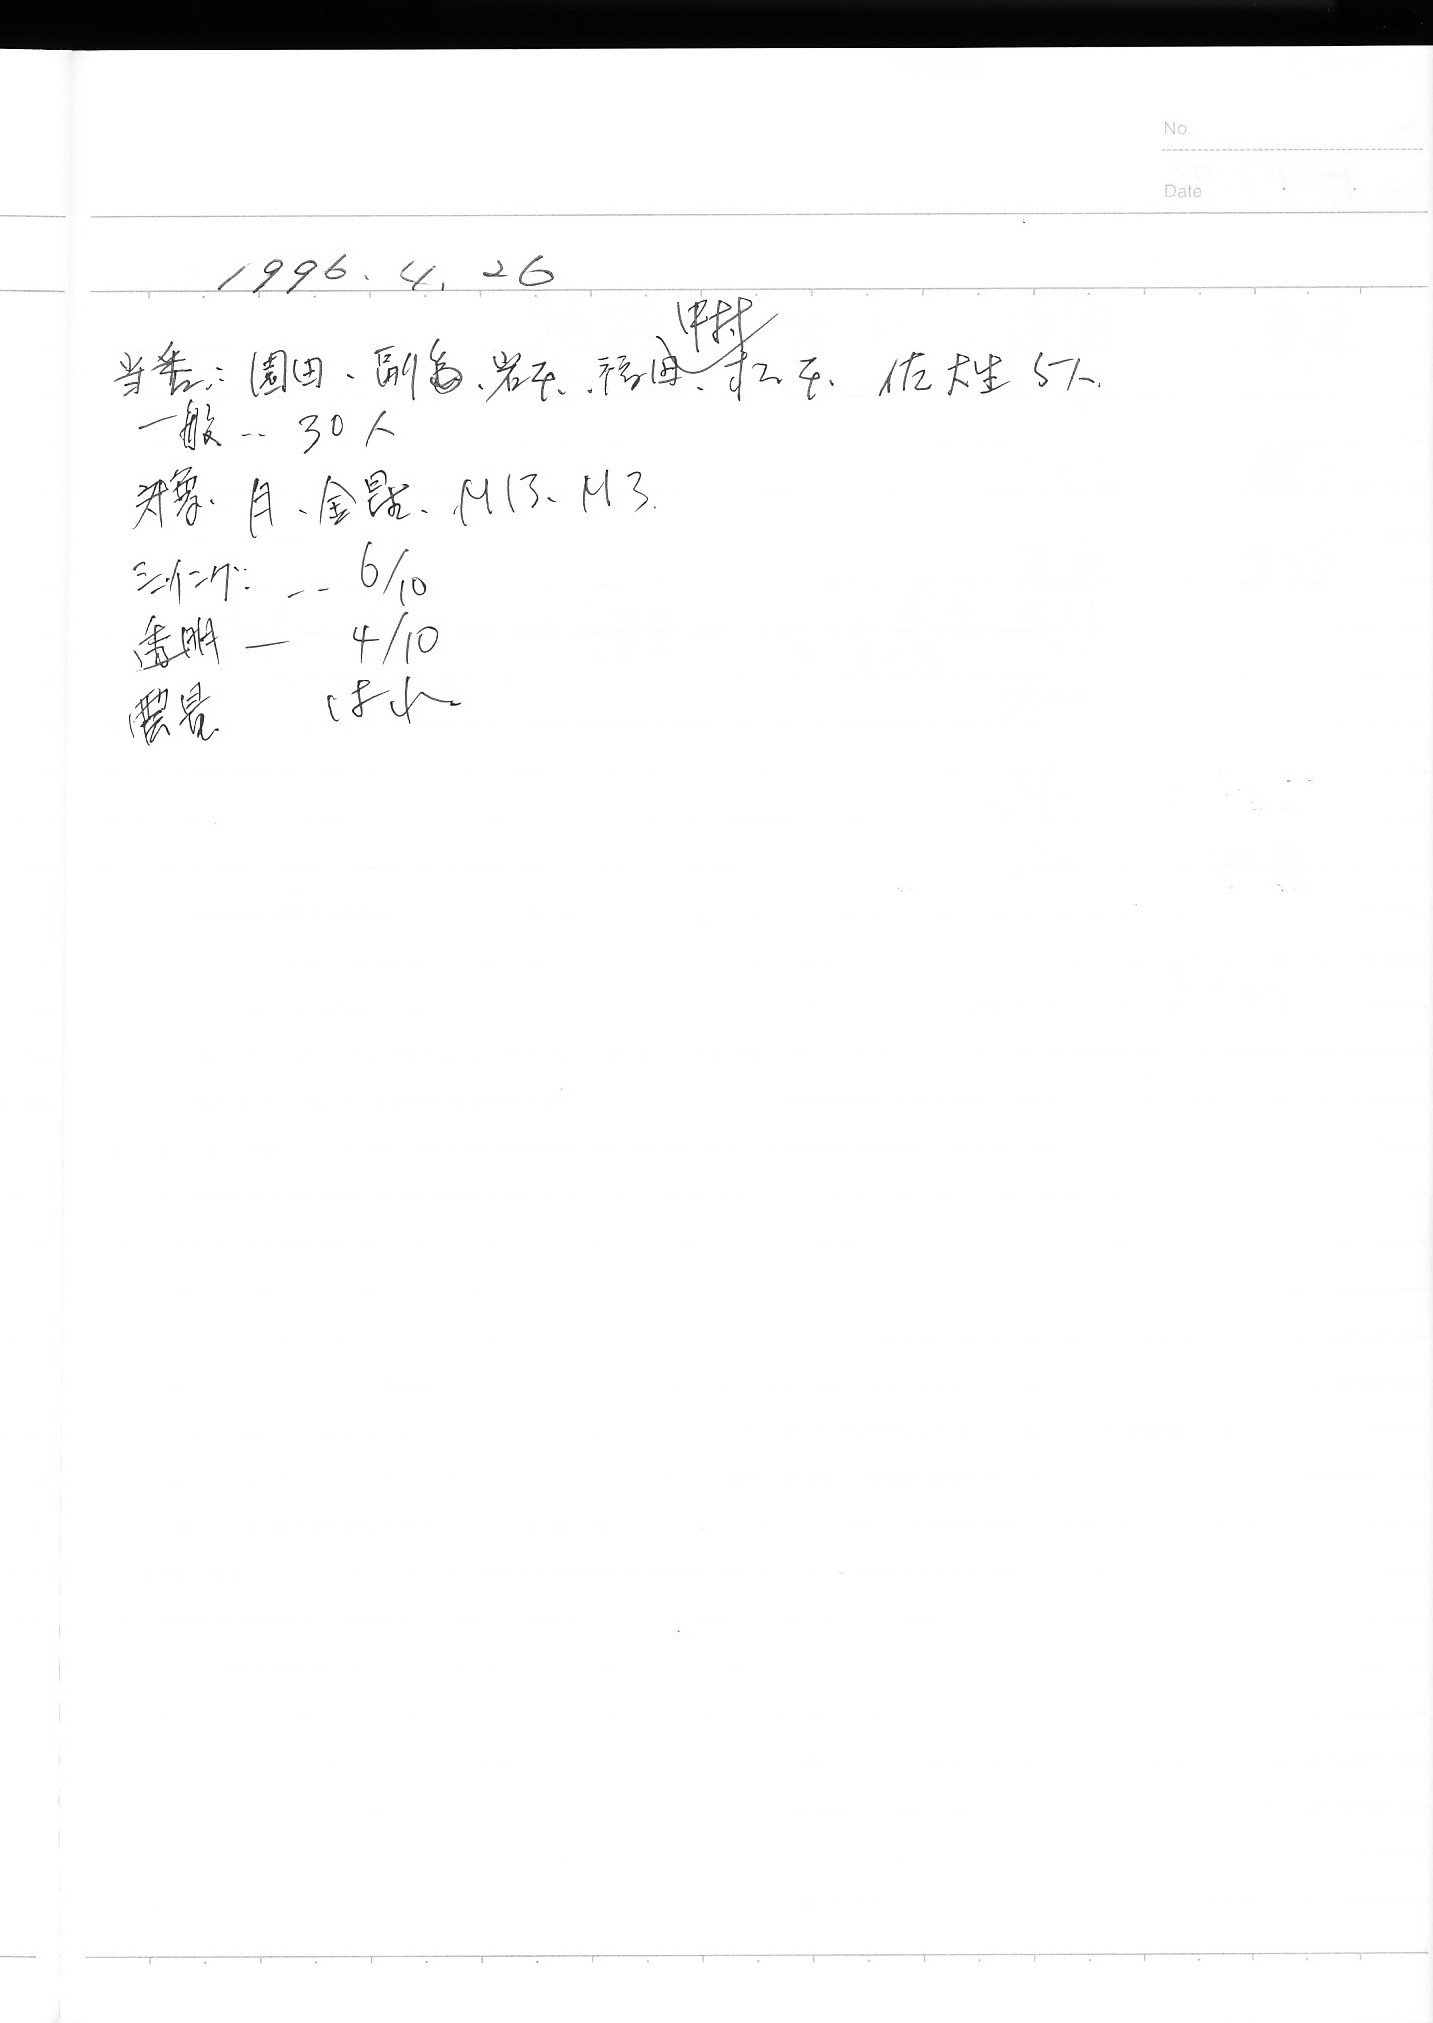 No.
Date
1996.4.26
中村
当番:園田、副島、岩下、福田、松下、佐大生5人
一般‥30人
対象.月、金星、M13、M3.
シーイング:‥6/10
透明—4/10
雲量 はれ